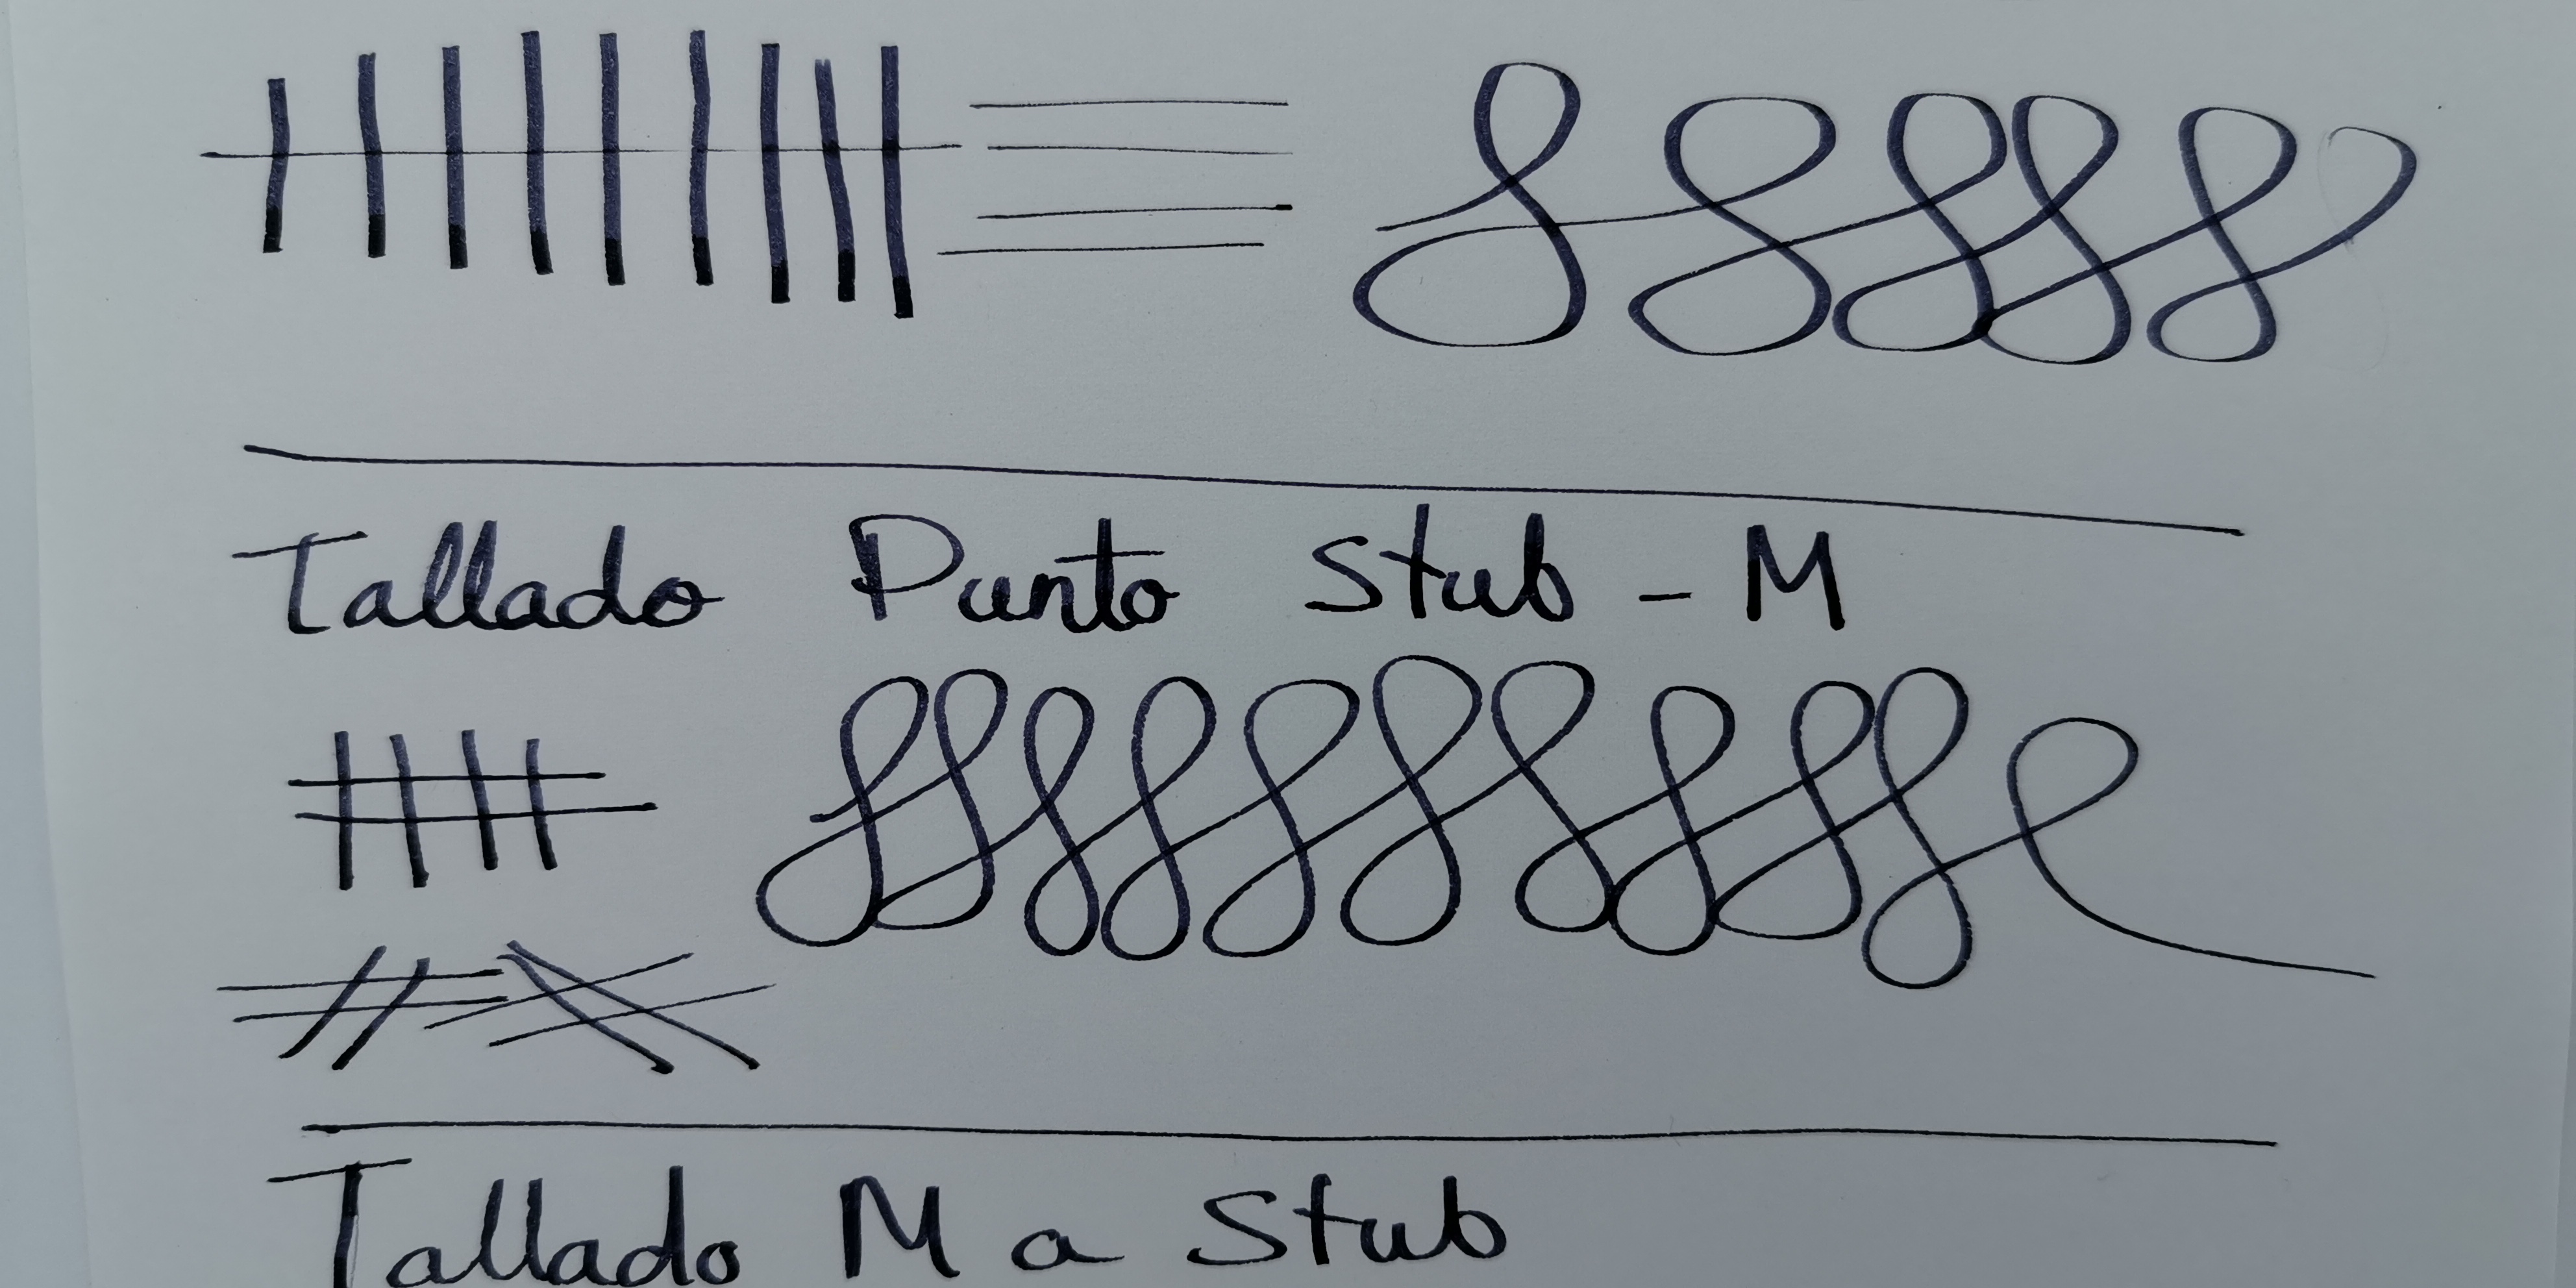 Tallado Punto Stub - M
Tallado M a Stub